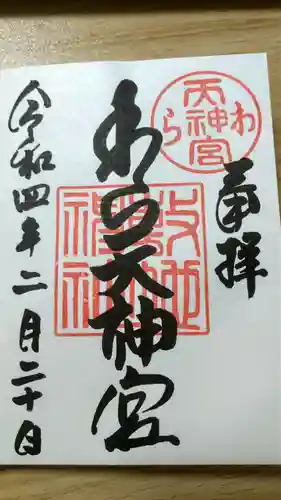 奉拝
わら天神宮
わら天神宮
敷地神社
令和四年二月二十日